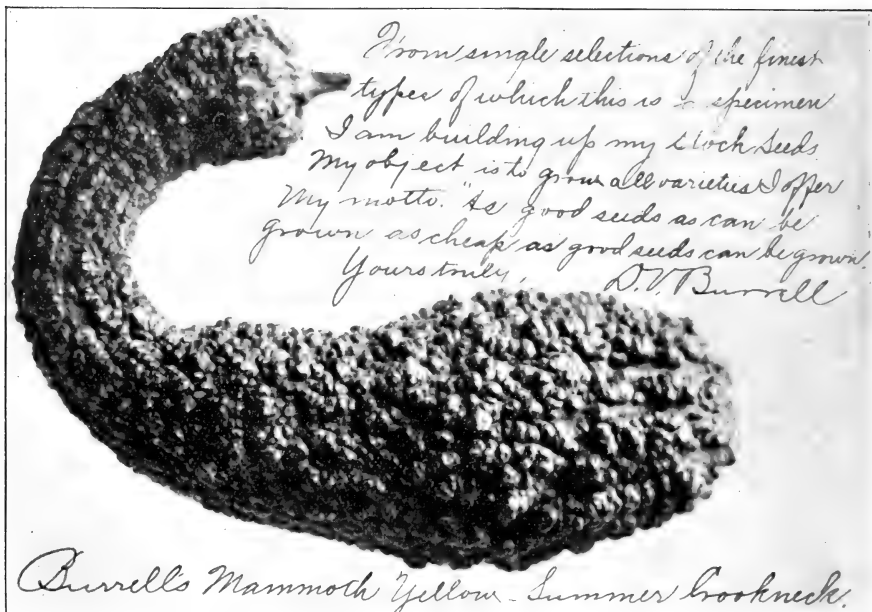 From single selections of the finest
types of which this is a specimen
I am building up my stock seeds
My object is to grow all varieties I offer
My motto. "As good seeds as can be
grown as cheap as good seeds can be grown.
Yours truly, D.V. Burrell
Burrell's Mammoth Yellow Summer Crookneck.